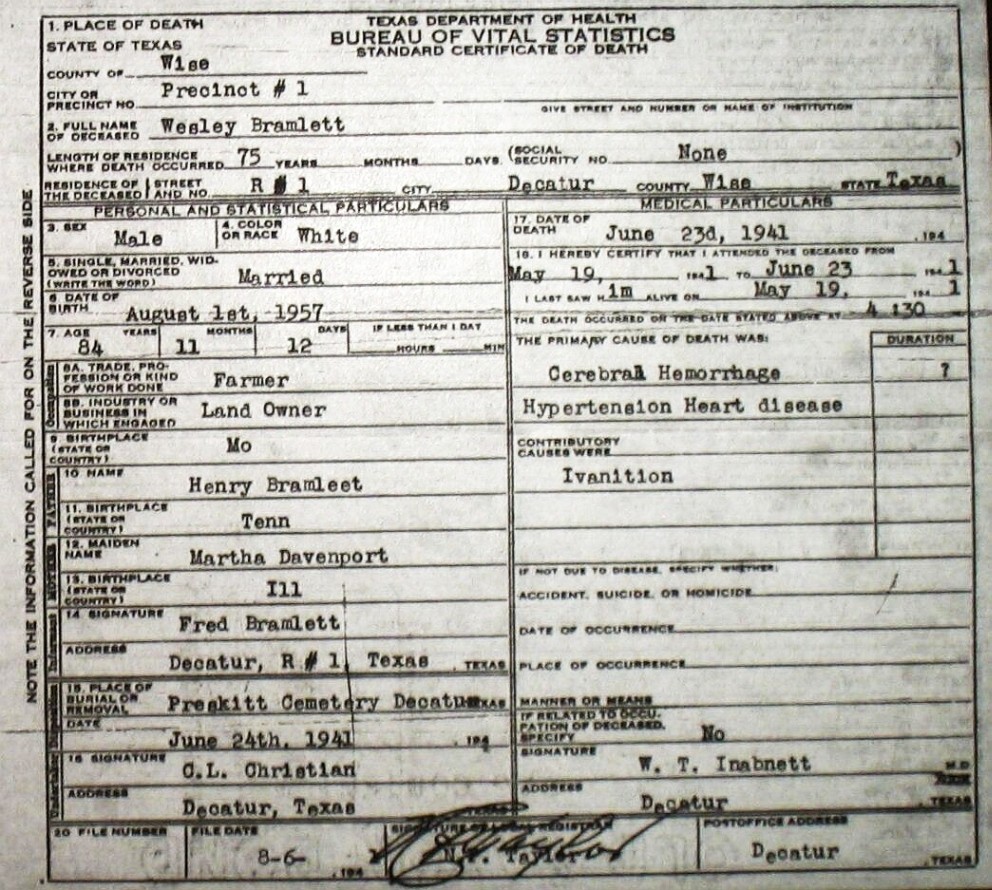 TEXAS DEPARTMENT OF HEALTH
BUREAU OF VITAL STATISTICS
STANDARD CERTIFICATE OF DEATH
1. PLACE OF DEATH
STATE OF TEXAS
COUNTY OF Wise
CITY OR PRECINCT NO. Precinct # 1
GIVE STREET AND NUMBER OR NAME OF INSTITUTION
2. FULL NAME OF DECEASED Wesley Bramlett
LENGTH OF RESIDENCE WHERE DEATH OCCURRED 75 YEARS MONTHS DAYS (SOCIAL SECURITY NO. None )
RESIDENCE OF THE DECEASED STREET AND NO. R # 1 CITY Decatur COUNTY Wise STATE Texas
PERSONAL AND STATISTICAL PARTICULARS
3. SEX Male
4. COLOR OR RACE White
5. SINGLE, MARRIED, WIDOWED OR DIVORCED (WRITE THE WORD) Married
6 DATE OF BIRTH August 1st, 1957
7. AGE YEARS MONTHS DAYS IF LESS THAN 1 DAY
84 11 12 HOURS MIN
8A. TRADE, PROFESSION OR KIND OF WORK DONE Farmer
8B. INDUSTRY OR BUSINESS IN WHICH ENGAGED Land Owner
9. BIRTHPLACE (STATE OR COUNTRY) Mo
10 NAME Henry Bramleet
11. BIRTHPLACE (STATE OR COUNTRY) Tenn
12. MAIDEN NAME Martha Davenport
13. BIRTHPLACE (STATE OR COUNTRY) Ill
14 SIGNATURE Fred Bramlett
ADDRESS Decatur, R # 1, Texas , TEXAS
15. PLACE OF BURIAL OR REMOVAL Preskitt Cemetery Decatur
DATE June 24th, 1941 , 194
16 SIGNATURE C.L. Christian
ADDRESS Decatur, Texas TEXAS
MEDICAL PARTICULARS
17. DATE OF DEATH June 23d, 1941 , 194
18. I HEREBY CERTIFY THAT I ATTENDED THE DECEASED FROM
May 19, 1941 TO June 23 1941
I LAST SAW H im ALIVE ON May 19, 1941
THE DEATH OCCURRED ON THE DATE STATED ABOVE AT 4:30
THE PRIMARY CAUSE OF DEATH WAS: DURATION
Cerebral Hemorrhage ?
Hypertension Heart disease
CONTRIBUTORY CAUSES WERE
Ivanition
IF NOT DUE TO DISEASE, SPECIFY WHETHER:
ACCIDENT, SUICIDE, OR HOMICIDE
DATE OF OCCURRENCE
PLACE OF OCCURRENCE
MANNER OR MEANS
IF RELATED TO OCCUPATION OF DECEASED, SPECIFY No
SIGNATURE W. T. Inabnett M.D.
ADDRESS Decatur , TEXAS
20 FILE NUMBER
FILE DATE 8-6- , 194
SIGNATURE OF LOCAL REGISTRAR
Taylor
POSTOFFICE ADDRESS Decatur , TEXAS
NOTE THE INFORMATION CALLED FOR ON THE REVERSE SIDE
Occupation
FATHER
MOTHER
Informant
Disposition
Undertaker